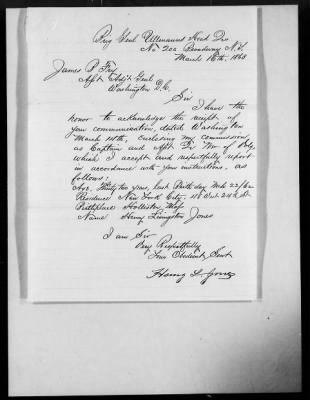 Brig Genl Ullmanns Head Qrs
No 200 Broadway N.Y.
March 16th, 1863
James B Fry
Asst Adjt Genl
Washington D.C.
Sir
I have the
honor to acknowledge the receipt of
your communication, dated Washington
March 14th, enclosing my commission,
as Captain and Asst Qr Mr of Vols,
which I accept and respectfully report
in accordance with your instructions, as
follows:
Age, Thirty two years, last Birth day
Residence New York City, 24th St
Birthplace Holliston, Mass
Name Henry Livingston Jones
I am Sir
Very Respectfully
Your Obedient Servt
Henry L. Jones